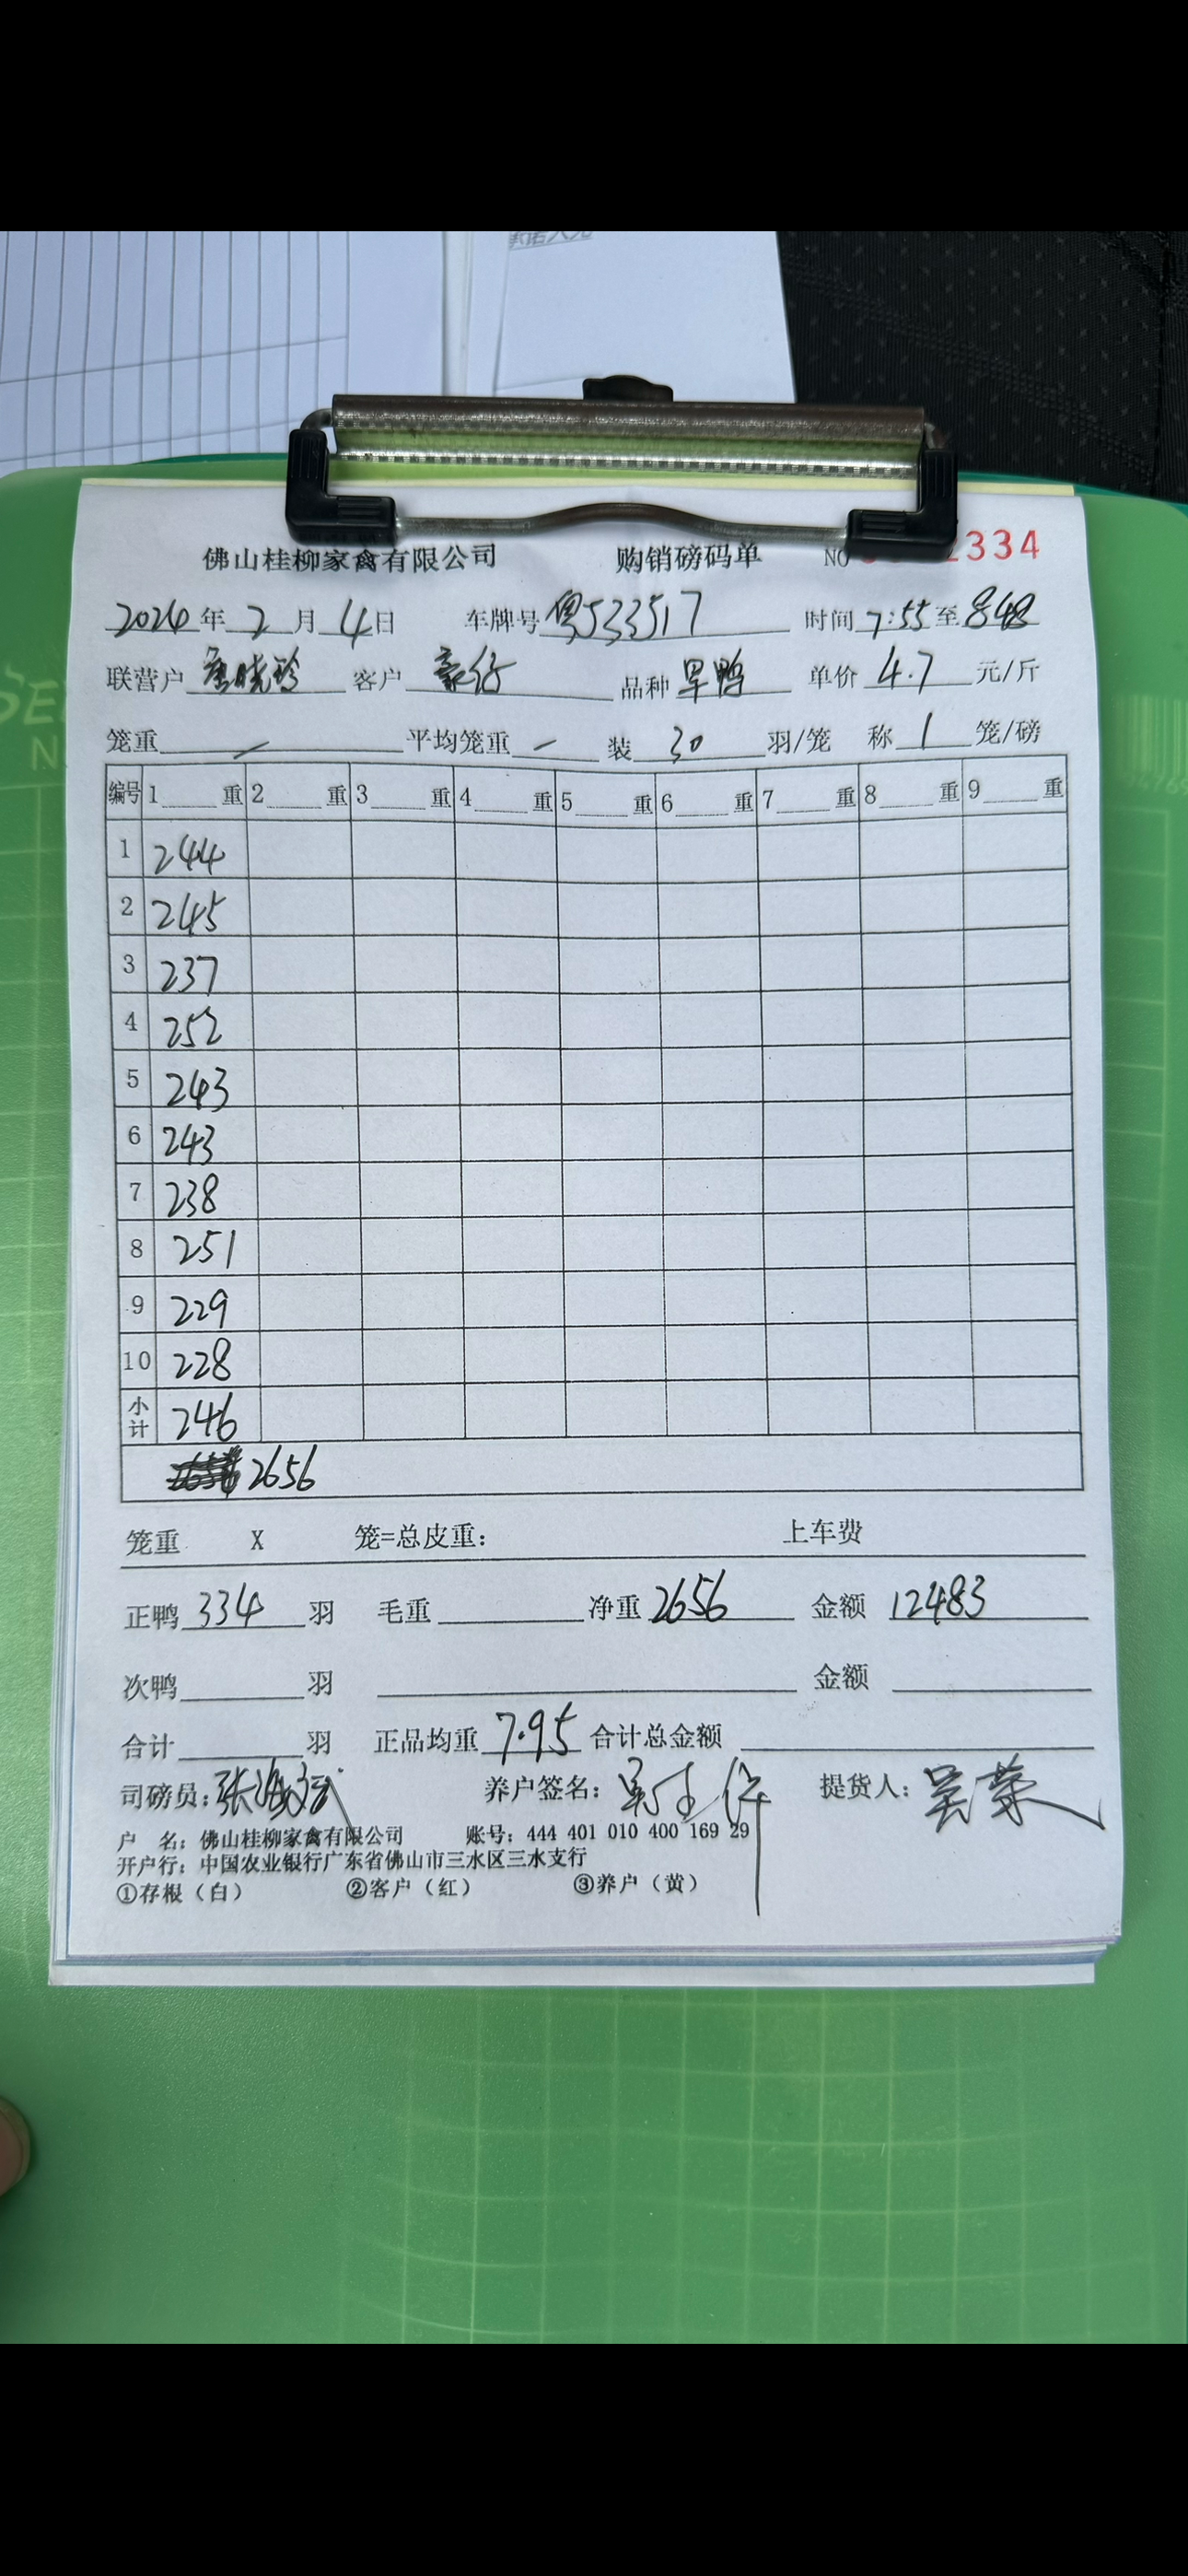 佛山桂柳家禽有限公司 购销磅码单 NO 2334
2024年2月4日 车牌号粤J33517 时间7:55至8:48
联营户 客户豪仔 品种旱鸭 单价4.7元/斤
笼重 / 平均笼重 - 装30羽/笼 称1笼/磅
编号 1 重 2 重 3 重 4 重 5 重 6 重 7 重 8 重 9 重
1 244
2 245
3 237
4 252
5 243
6 243
7 238
8 251
9 229
10 228
小计 246
2656
笼重 X 笼=总皮重: 上车费
正鸭334羽 毛重 净重2656 金额12483
次鸭 羽 金额
合计 羽 正品均重7.95 合计总金额
司磅员: 养户签名: 提货人:
户 名: 佛山桂柳家禽有限公司 账号: 444 401 010 400 169 29
开户行: 中国农业银行广东省佛山市三水区三水支行
①存根（白） ②客户（红） ③养户（黄）